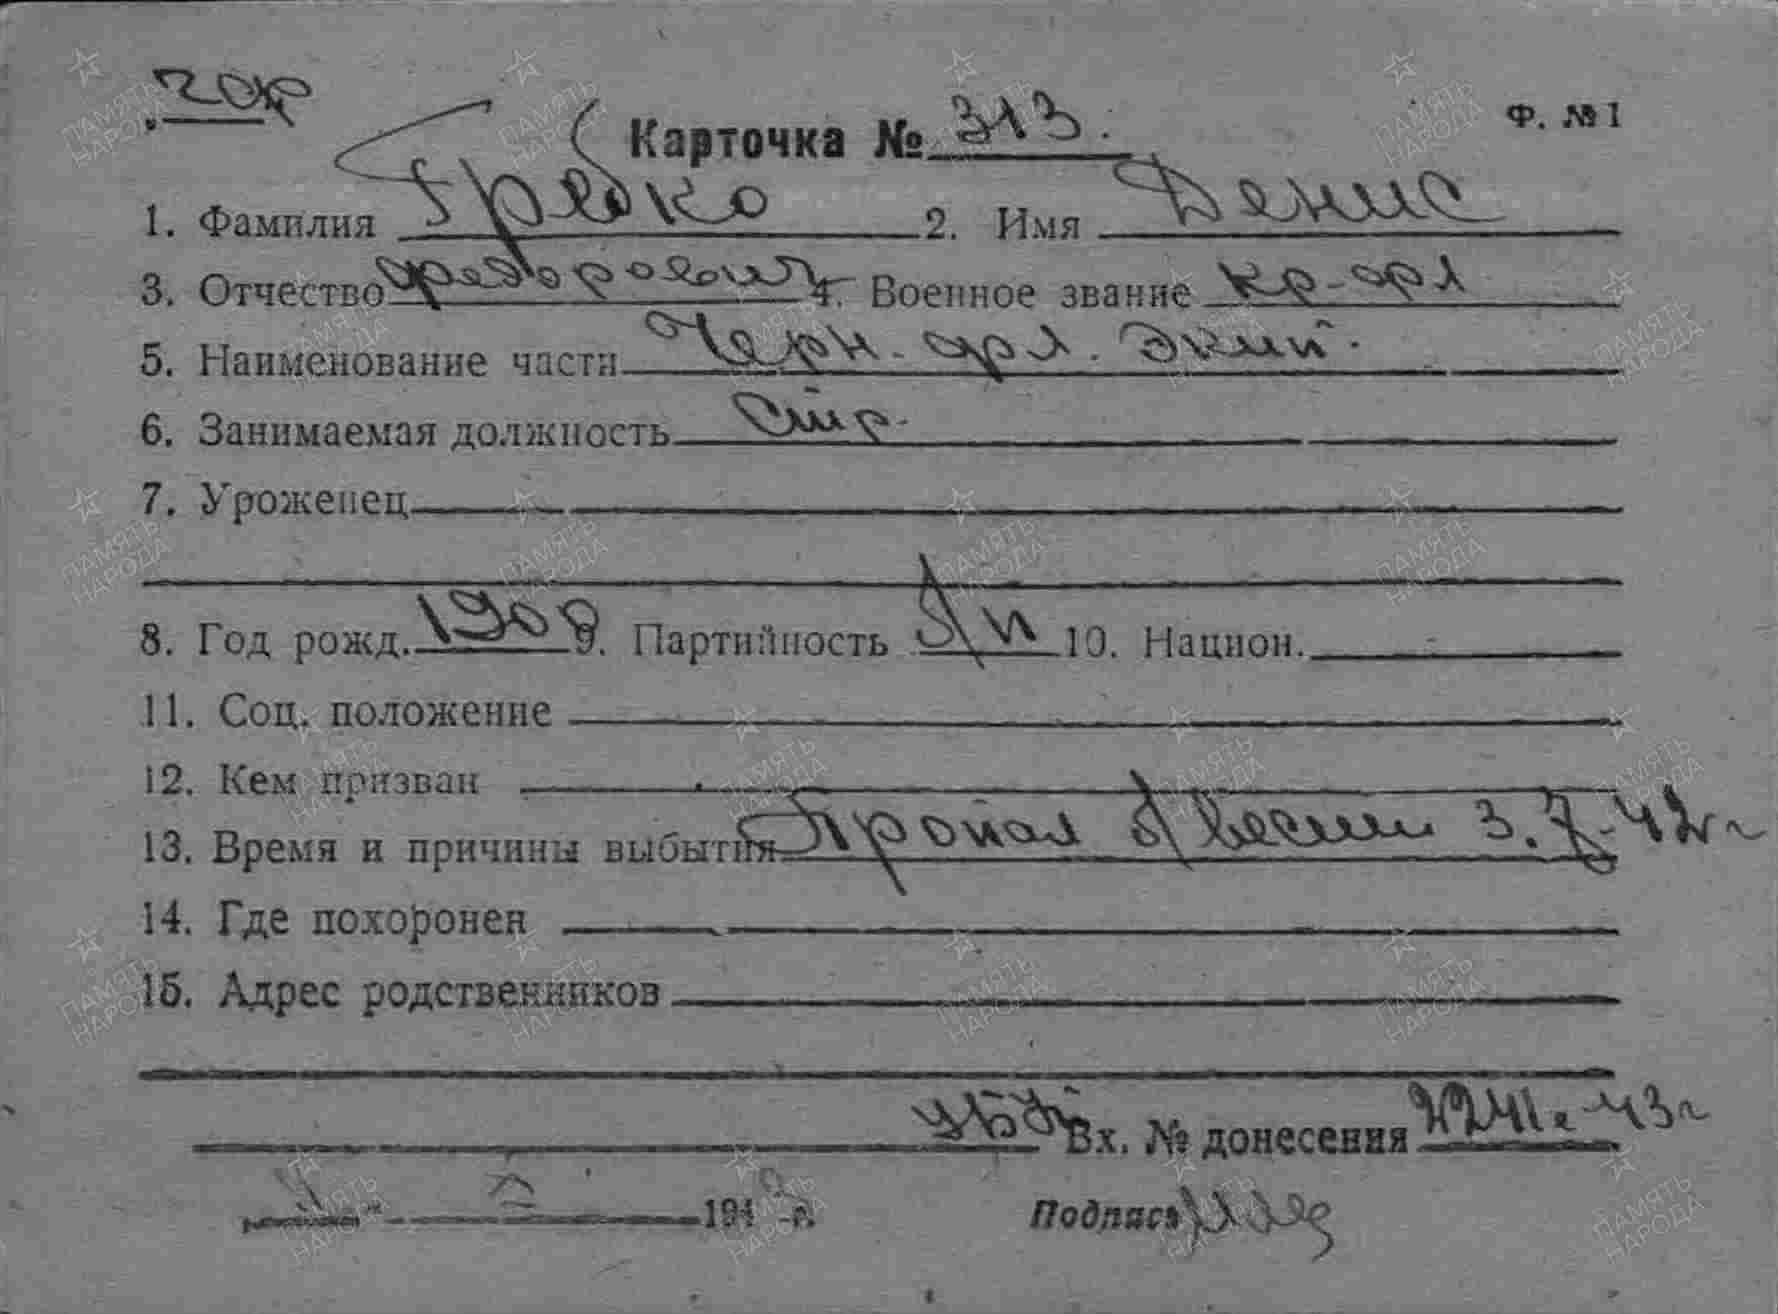 Ф. №1
Карточка № 313.
1. Фамилия Гребко 2. Имя Денис
3. Отчество Федорович 4. Военное звание кр-фл
5. Наименование части Черн. фл. Экип.
6. Занимаемая должность Стр.
7. Уроженец
8. Год рожд. 1908 9. Партийность б/п 10. Национ.
11. Соц. положение
12. Кем призван
13. Время и причины выбытия Пропал б/вести 3.7-42г
14. Где похоронен
15. Адрес родственников
Вх. № донесения 43г
194 г.
Подпись
ПАМЯТЬ НАРОДА